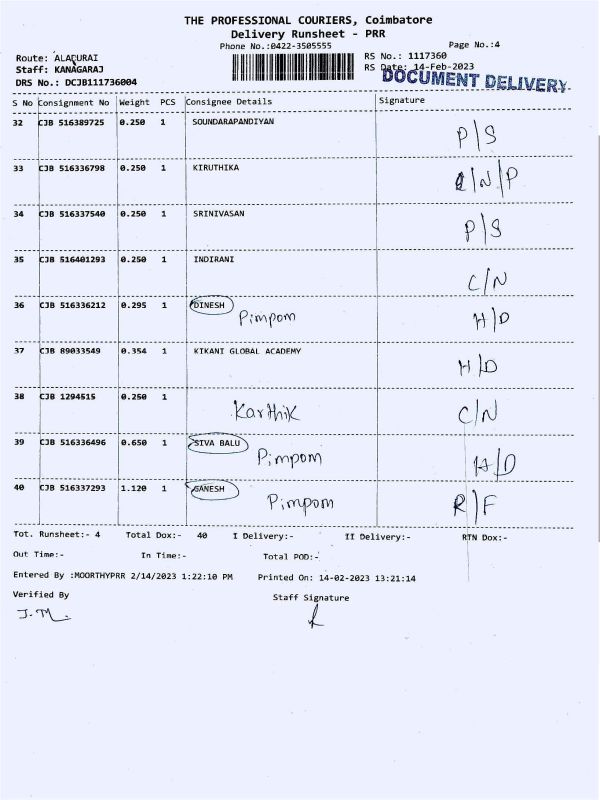 THE PROFESSIONAL COURIERS, Coimbatore
Delivery Runsheet - PRR
Phone No.:0422-3505555 Page No.:4
Route: ALADURAI RS No.: 1117360
Staff: KANAGARAJ RS Date: 14-Feb-2023
DRS No.: DCJB111736004 DOCUMENT DELIVERY
S No Consignment No Weight PCS Consignee Details Signature
32 CJB 516389725 0.250 1 SOUNDARAPANDIYAN P/S
33 CJB 516336798 0.250 1 KIRUTHIKA /N/P
34 CJB 516337540 0.250 1 SRINIVASAN P/S
35 CJB 516401293 0.250 1 INDIRANI C/N
36 CJB 516336212 0.295 1 DINESH Pimpom H/D
37 CJB 89033549 0.354 1 KIKANI GLOBAL ACADEMY H/D
38 CJB 1294515 0.250 1 Karthik C/N
39 CJB 516336496 0.650 1 SIVA BALU Pimpom H/D
40 CJB 516337293 1.120 1 GANESH Pimpom R/F
Tot. Runsheet:- 4 Total Dox:- 40 I Delivery:- II Delivery:- RTN Dox:-
Out Time:- In Time:- Total POD:-
Entered By :MOORTHYPRR 2/14/2023 1:22:10 PM Printed On: 14-02-2023 13:21:14
Verified By Staff Signature
J.M.